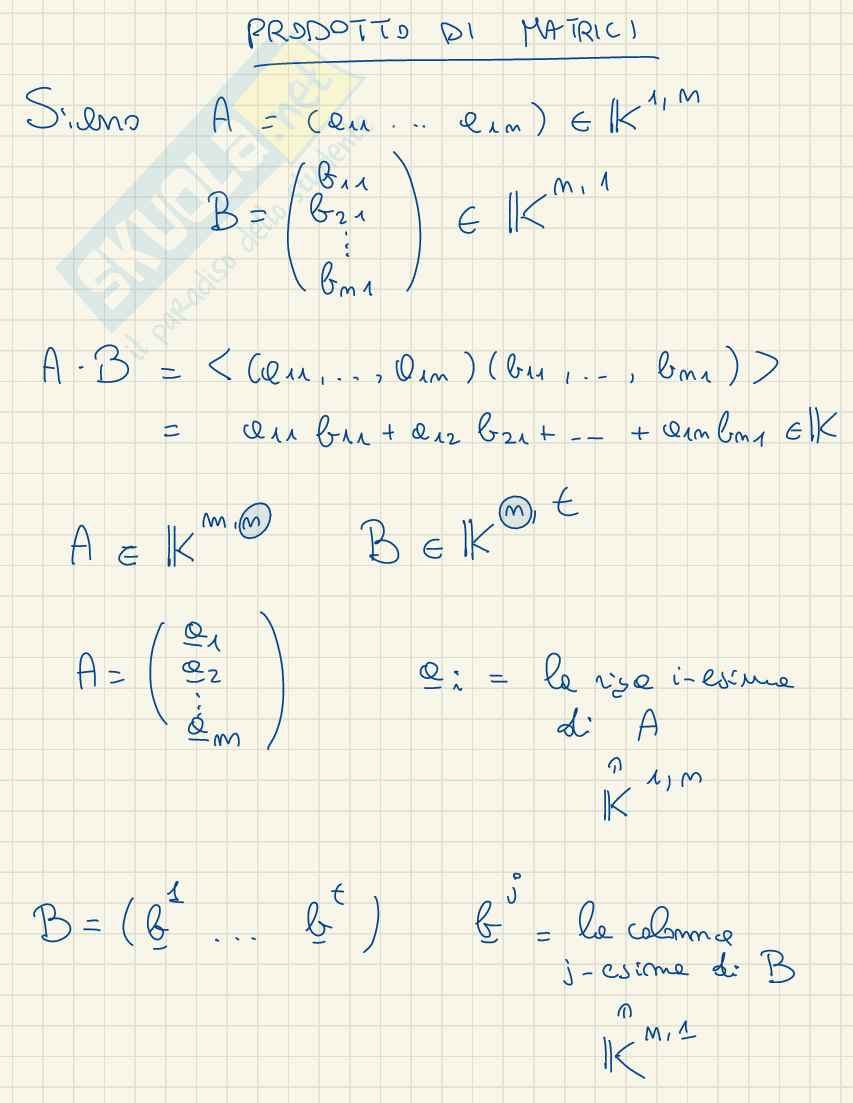 PRODOTTO DI MATRICI
Siano A = (a₁₁ ... a₁ₙ) ∈ 𝕂^{1,n}
B = (b₁₁
b₂₁
⋮
bₙ₁) ∈ 𝕂^{n,1}
A · B = <(a₁₁, ..., a₁ₙ)(b₁₁, ..., bₙ₁)>
= a₁₁ b₁₁ + a₁₂ b₂₁ + ... + a₁ₙ bₙ₁ ∈ 𝕂
A ∈ 𝕂^{m,n} B ∈ 𝕂^{n,t}
A = (a₁
a₂
⋮
aₘ) aᵢ = la riga i-esima
di A
∩
𝕂^{1,n}
B = (b¹ ... bᵗ) bʲ = la colonna
j-esima di B
∩
𝕂^{n,1}
SKUOLA.net
il paradiso dello studente